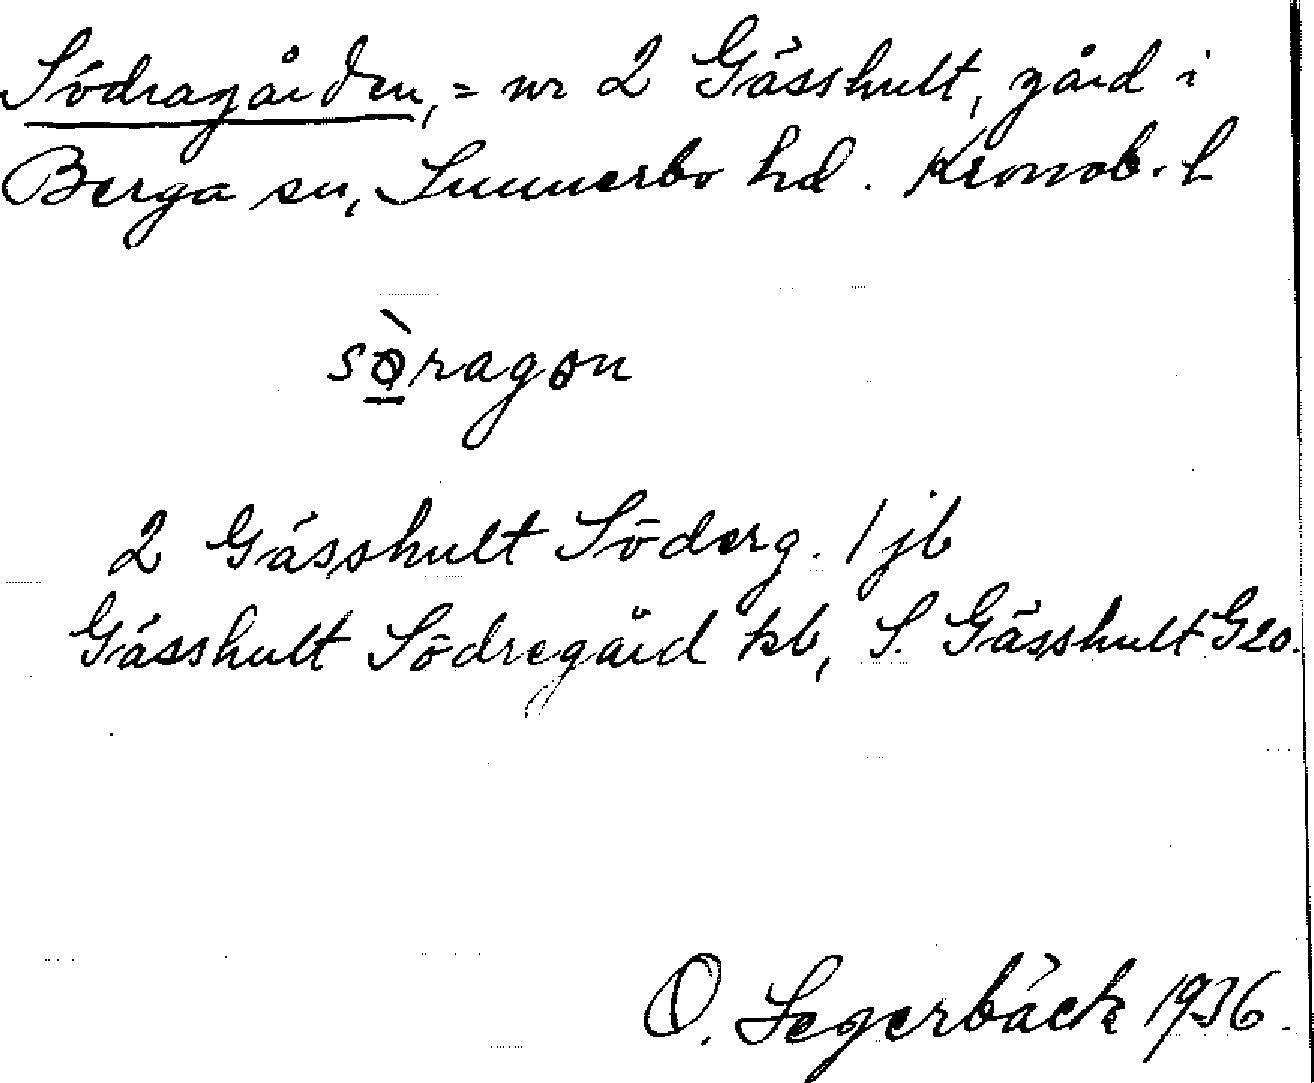 Södragården, = nr 2 Gässhult, gård i
Berga sn, Sunnerbo hd. Kronob. l
sø̀ragɵn
2 Gässhult Söderg. 1 jb
Gässhult Södregård kb, S. Gässhult G20.
O. Segerbäck 1936.